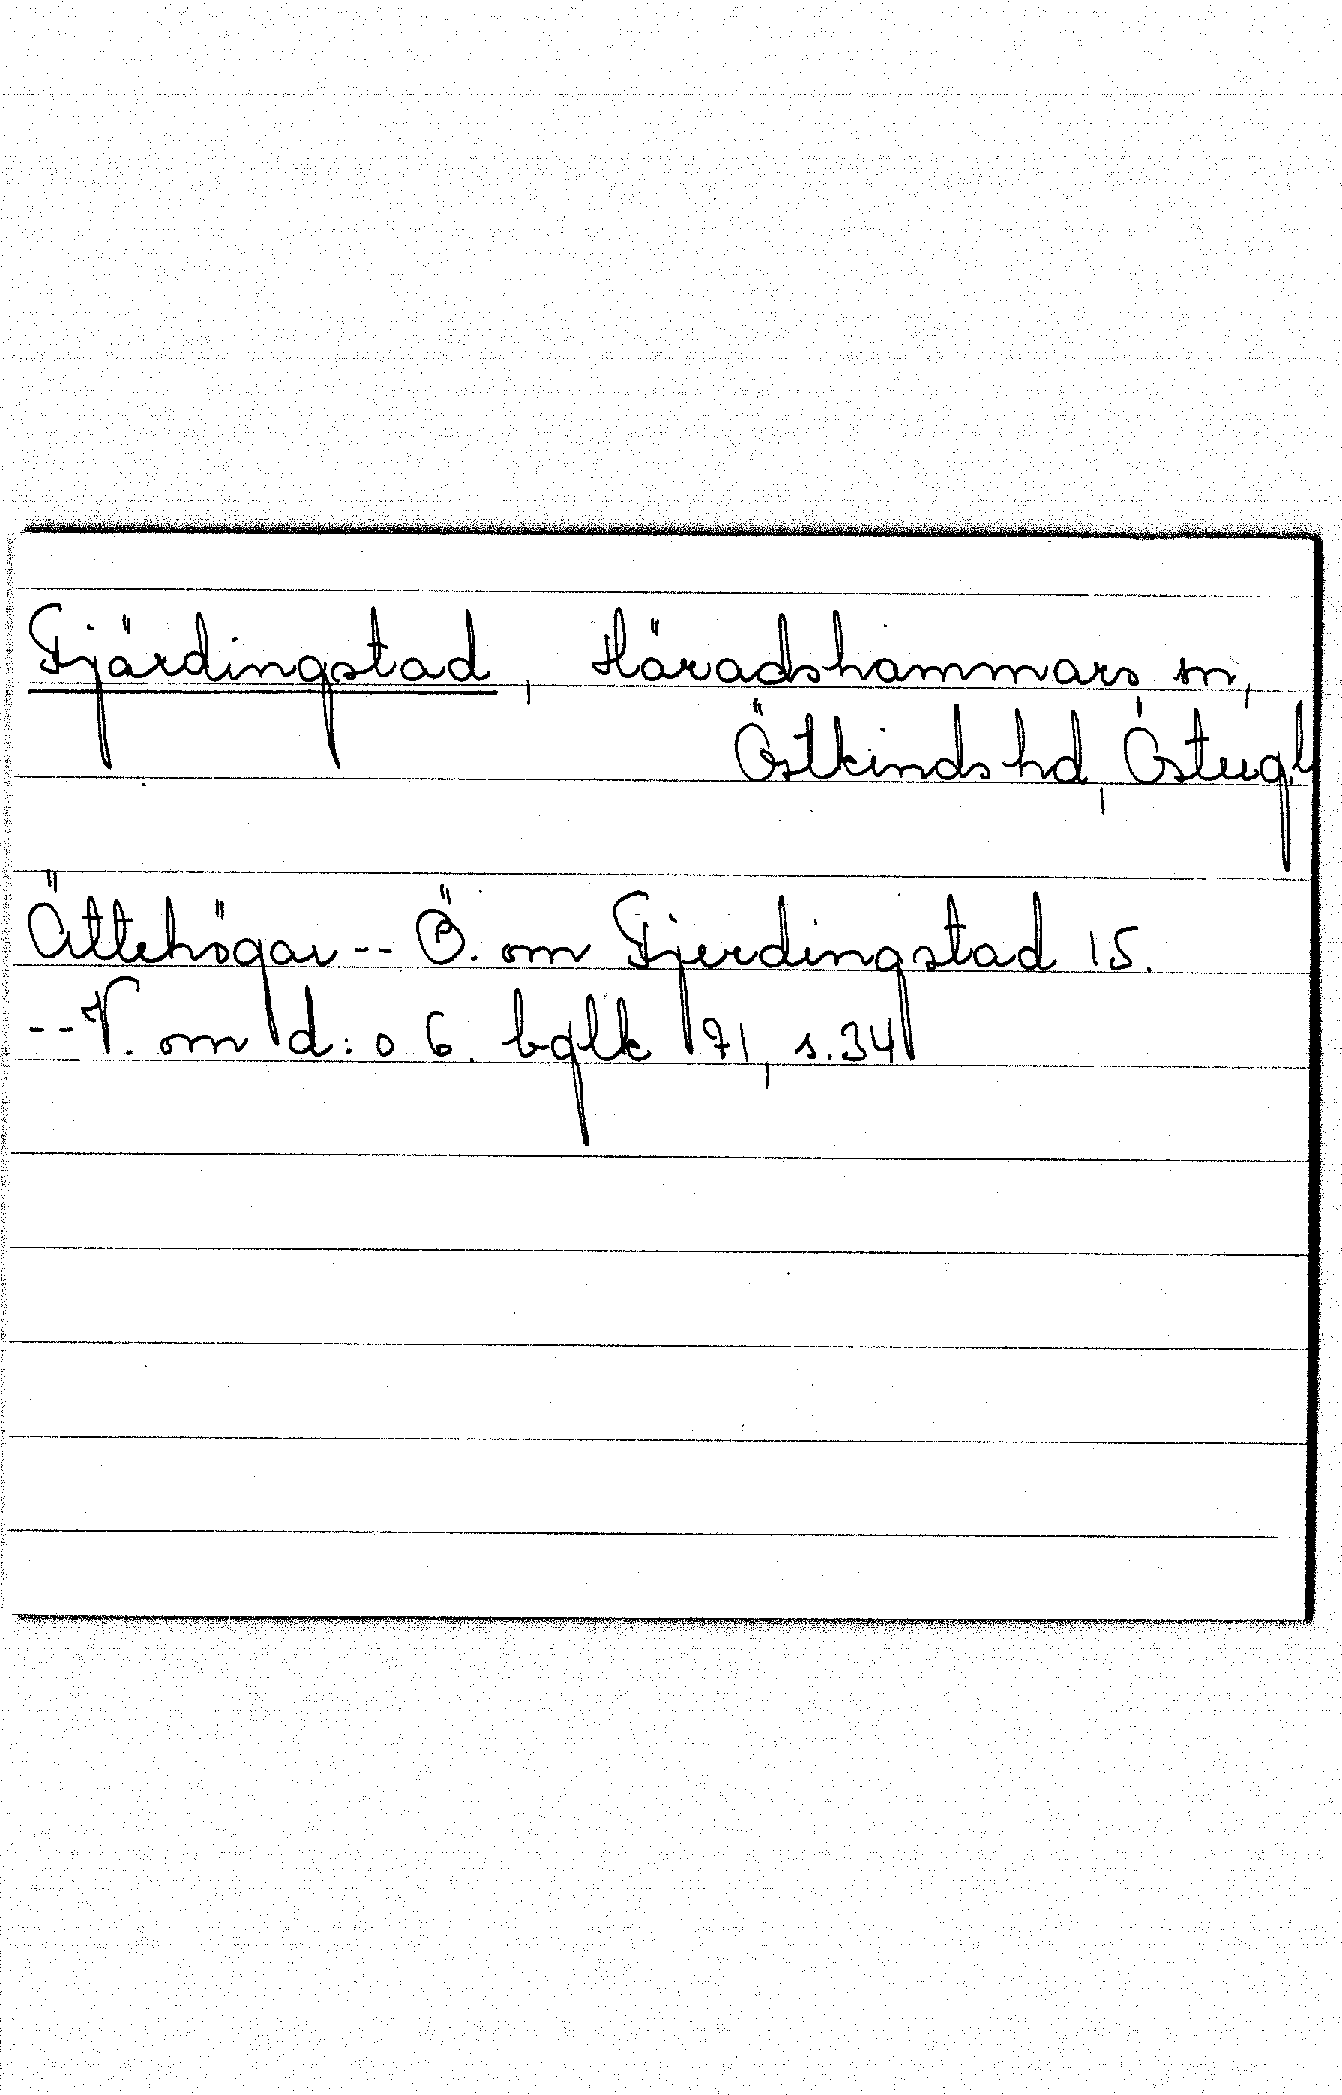 Fjärdingstad, Häradshammars sn,
Östkinds hd, Östergl
Ättehögar -- Ö. om Fjerdingstad 15.
-- V. om d:o 6. bglk 71, s. 34